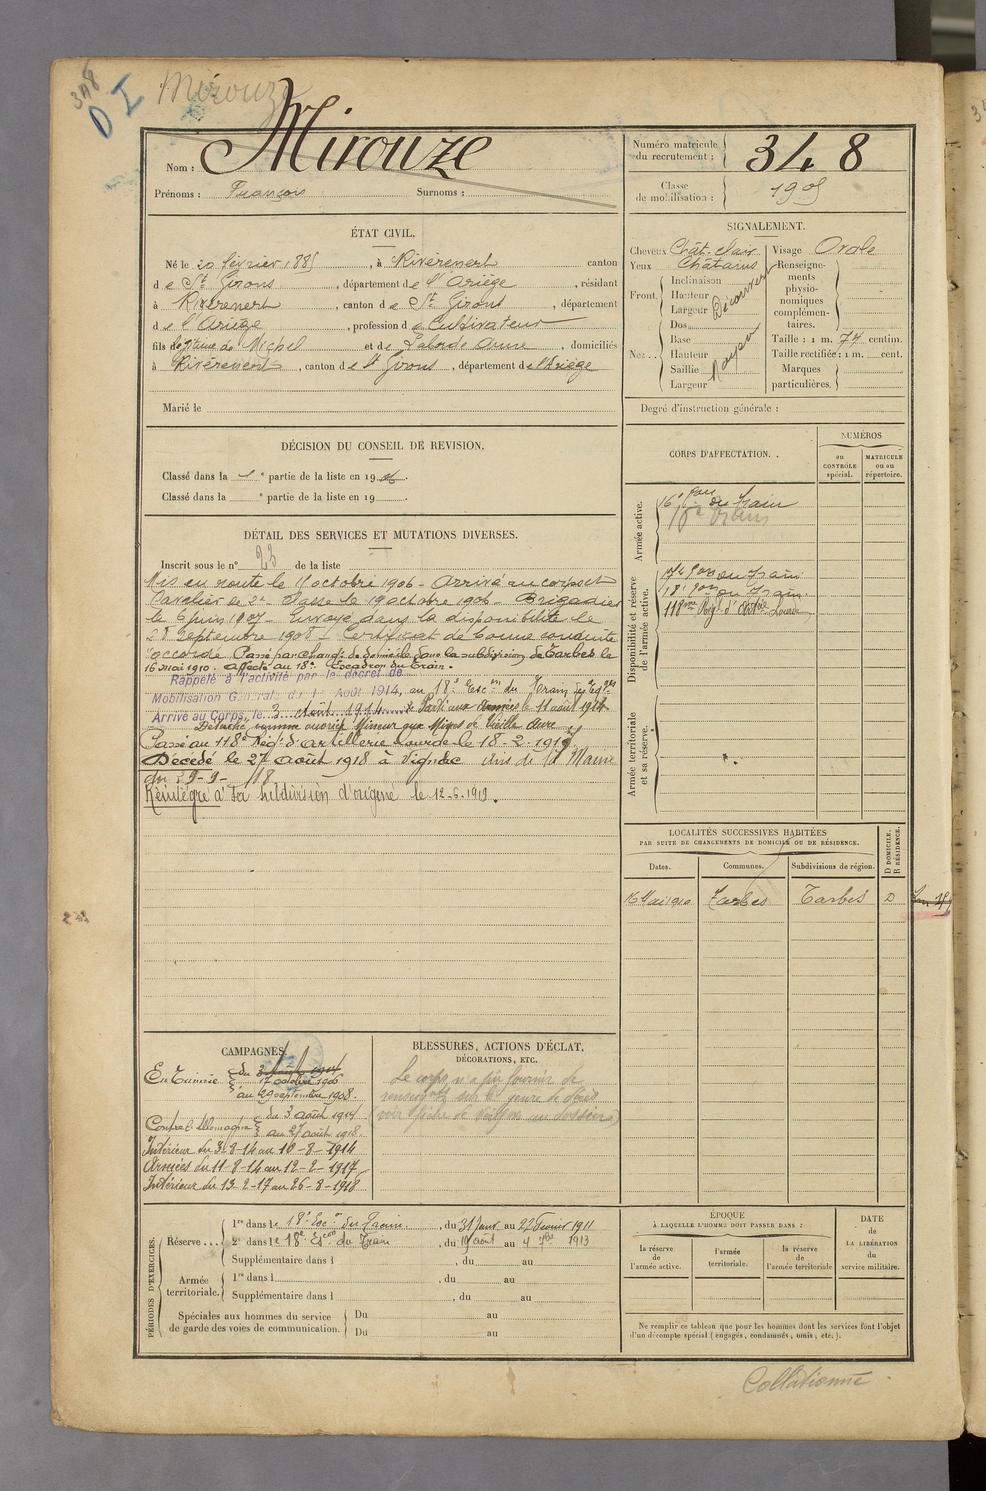 348
D I
Mirouze
Nom : Mirouze
Prénoms : François Surnoms :
Numéro matricule du recrutement : 348
Classe de mobilisation : 1905
ÉTAT CIVIL.
Né le 20 février 1885, à Rivèrenert canton
de St Girons, département de l'Ariège, résidant
à Rivèrenert, canton de St Girons, département
de l'Ariège, profession de Cultivateur
fils légitime de Michel et de Laborde Anne, domiciliés
à Rivèrenert, canton de St Girons, département de l'Ariège
Marié le
SIGNALEMENT.
Cheveux Chât. clair Visage Ovale
Yeux Châtains
Front. Inclinaison Hauteur Largeur Découvert
Nez... Dos Base Hauteur Saillie Largeur Moyen
Renseignements physionomiques complémentaires.
Taille : 1 m. 74 centim.
Taille rectifiée : 1 m. cent.
Marques particulières.
Degré d'instruction générale :
DÉCISION DU CONSEIL DE REVISION.
Classé dans la 1e partie de la liste en 1906.
Classé dans la e partie de la liste en 19
CORPS D'AFFECTATION.
NUMÉROS
au CONTRÔLE spécial.
MATRICULE ou au répertoire.
Armée active.
16e Eon du Train
Disponibilité et réserve de l'armée active.
17e Eon du Train
18e Eon du Train
118me Régt d'Artie Lourde
Armée territoriale et sa réserve.
DÉTAIL DES SERVICES ET MUTATIONS DIVERSES.
Inscrit sous le n° 23 de la liste
Mis en route le 9 octobre 1906 - Arrivé au corps et
Cavalier de 2e Classe le 19 octobre 1906 - Brigadier
le 6 juin 1907 - Envoyé dans la disponibilité le
28 Septembre 1908 - Certificat de bonne conduite
"accordé. Passé par changt de domicile dans la subdivision de Tarbes le
16 mai 1910. Affecté au 18e Escadron du Train.
Rappelé à l'activité par le décret de
Mobilisation Générale du 1er Août 1914, au 18e Escon du Train des Eqges
Arrivé au Corps, le 3 Août 1914. Parti aux Armées le 11 août 1914
Détaché comme ouvrier Mineur aux Mines de Vieille Aure
Passé au 118e Régt d'artillerie Lourde le 18-2-1917
Décédé le 27 Août 1918 à Vignec avis de la Mairie
du 29-9-18
Réintégré à sa subdivision d'origine le 12-6-1919.
LOCALITÉS SUCCESSIVES HABITÉES
PAR SUITE DE CHANGEMENTS DE DOMICILE OU DE RÉSIDENCE.
Dates. Communes. Subdivisions de région. D DOMICILE. R RÉSIDENCE.
16 Mai 1910 Tarbes Tarbes D
CAMPAGNES.
En Tunisie du 17 octobre 1906
au 29 septembre 1908.
Contre l'Allemagne du 3 août 1914
au 27 août 1918.
Intérieur du 3-8-14 au 10-8-1914
Armées du 11-8-14 au 12-2-1917
Intérieur du 13-2-17 au 26-8-1918
BLESSURES, ACTIONS D'ÉCLAT,
DÉCORATIONS, ETC.
Le corps n'a pu fournir de
renseignts sur le genre de décès
(voir fiche de au dossier)
PÉRIODES D'EXERCICES.
Réserve... 1re dans le 18e Escon du Train, du 31 Janv au 22 Février 1911
2e dans le 18e Escon du Train, du 19 août au 4 7bre 1913
Supplémentaire dans l , du au
Armée territoriale. 1re dans l , du au
Supplémentaire dans l , du au
Spéciales aux hommes du service de garde des voies de communication. Du au
Du au
ÉPOQUE
À LAQUELLE L'HOMME DOIT PASSER DANS :
la réserve de l'armée active.
l'armée territoriale.
la réserve de l'armée territoriale
DATE de LA LIBÉRATION du service militaire.
Ne remplir ce tableau que pour les hommes dont les services font l'objet
d'un décompte spécial (engagés, condamnés, omis, etc.).
Collationné